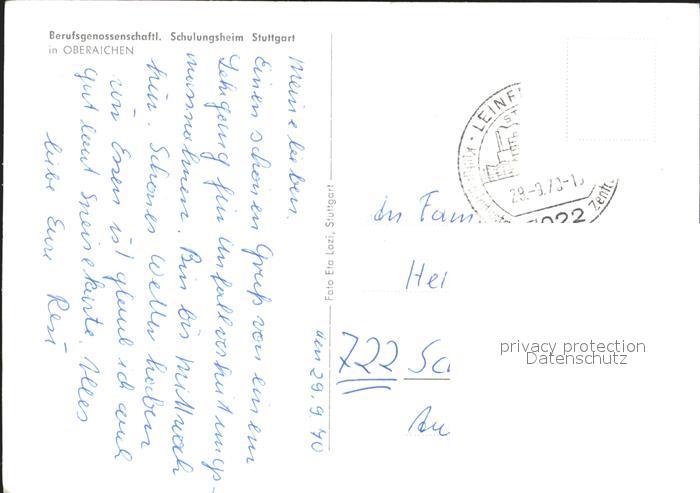 Berufsgenossenschaftl. Schulungsheim Stuttgart
in OBERAICHEN
den 29.9.70
Meine lieben.
Einen schönen Gruß von einem
Lehrgang für Unfallverhütungs-
massnahmen. Bin bis Mittwoch
hier. Schönes Wetter haben
wir Essen ist glaub ich auch
gut laut Speisekarte. Alles
liebe Eure Resi
Foto Eta Lazi, Stuttgart
LEINF
29.-9.70-1
7022
An Fam
Hei
722 Sc
Au
privacy protection
Datenschutz